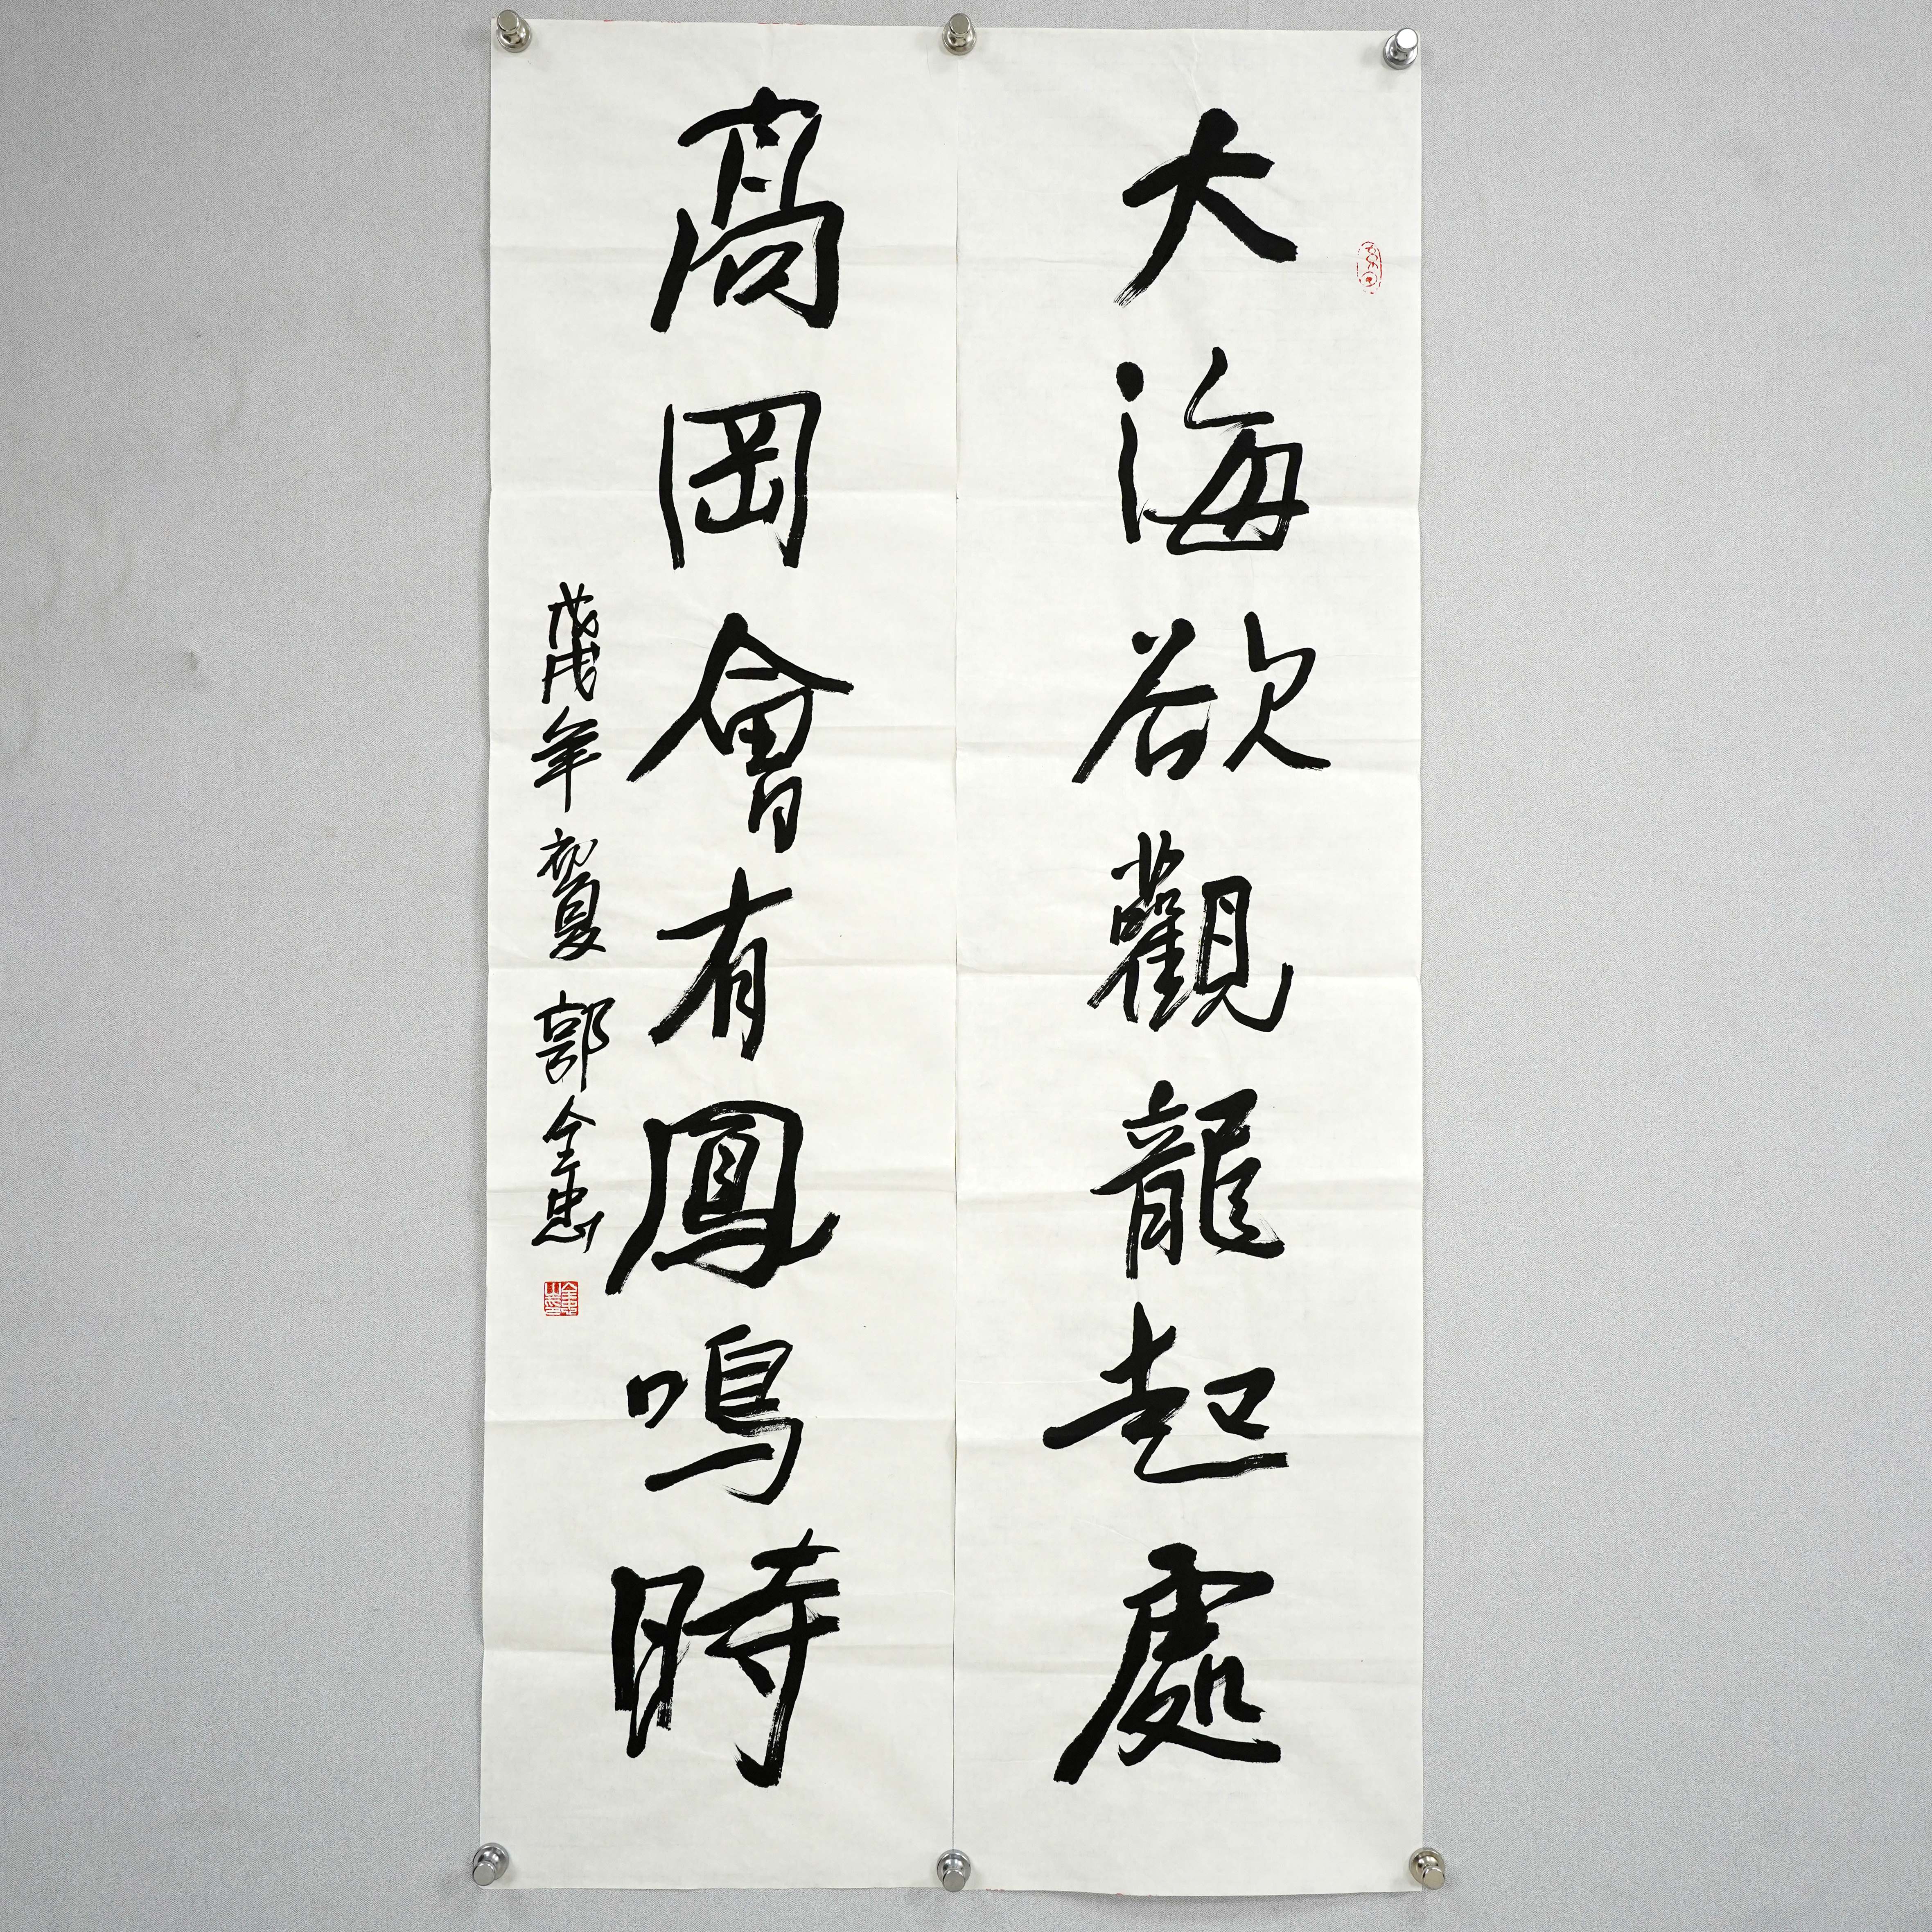 大海欲觀龍起處
高岡會有鳳鳴時
戊戌年初夏郭全忠